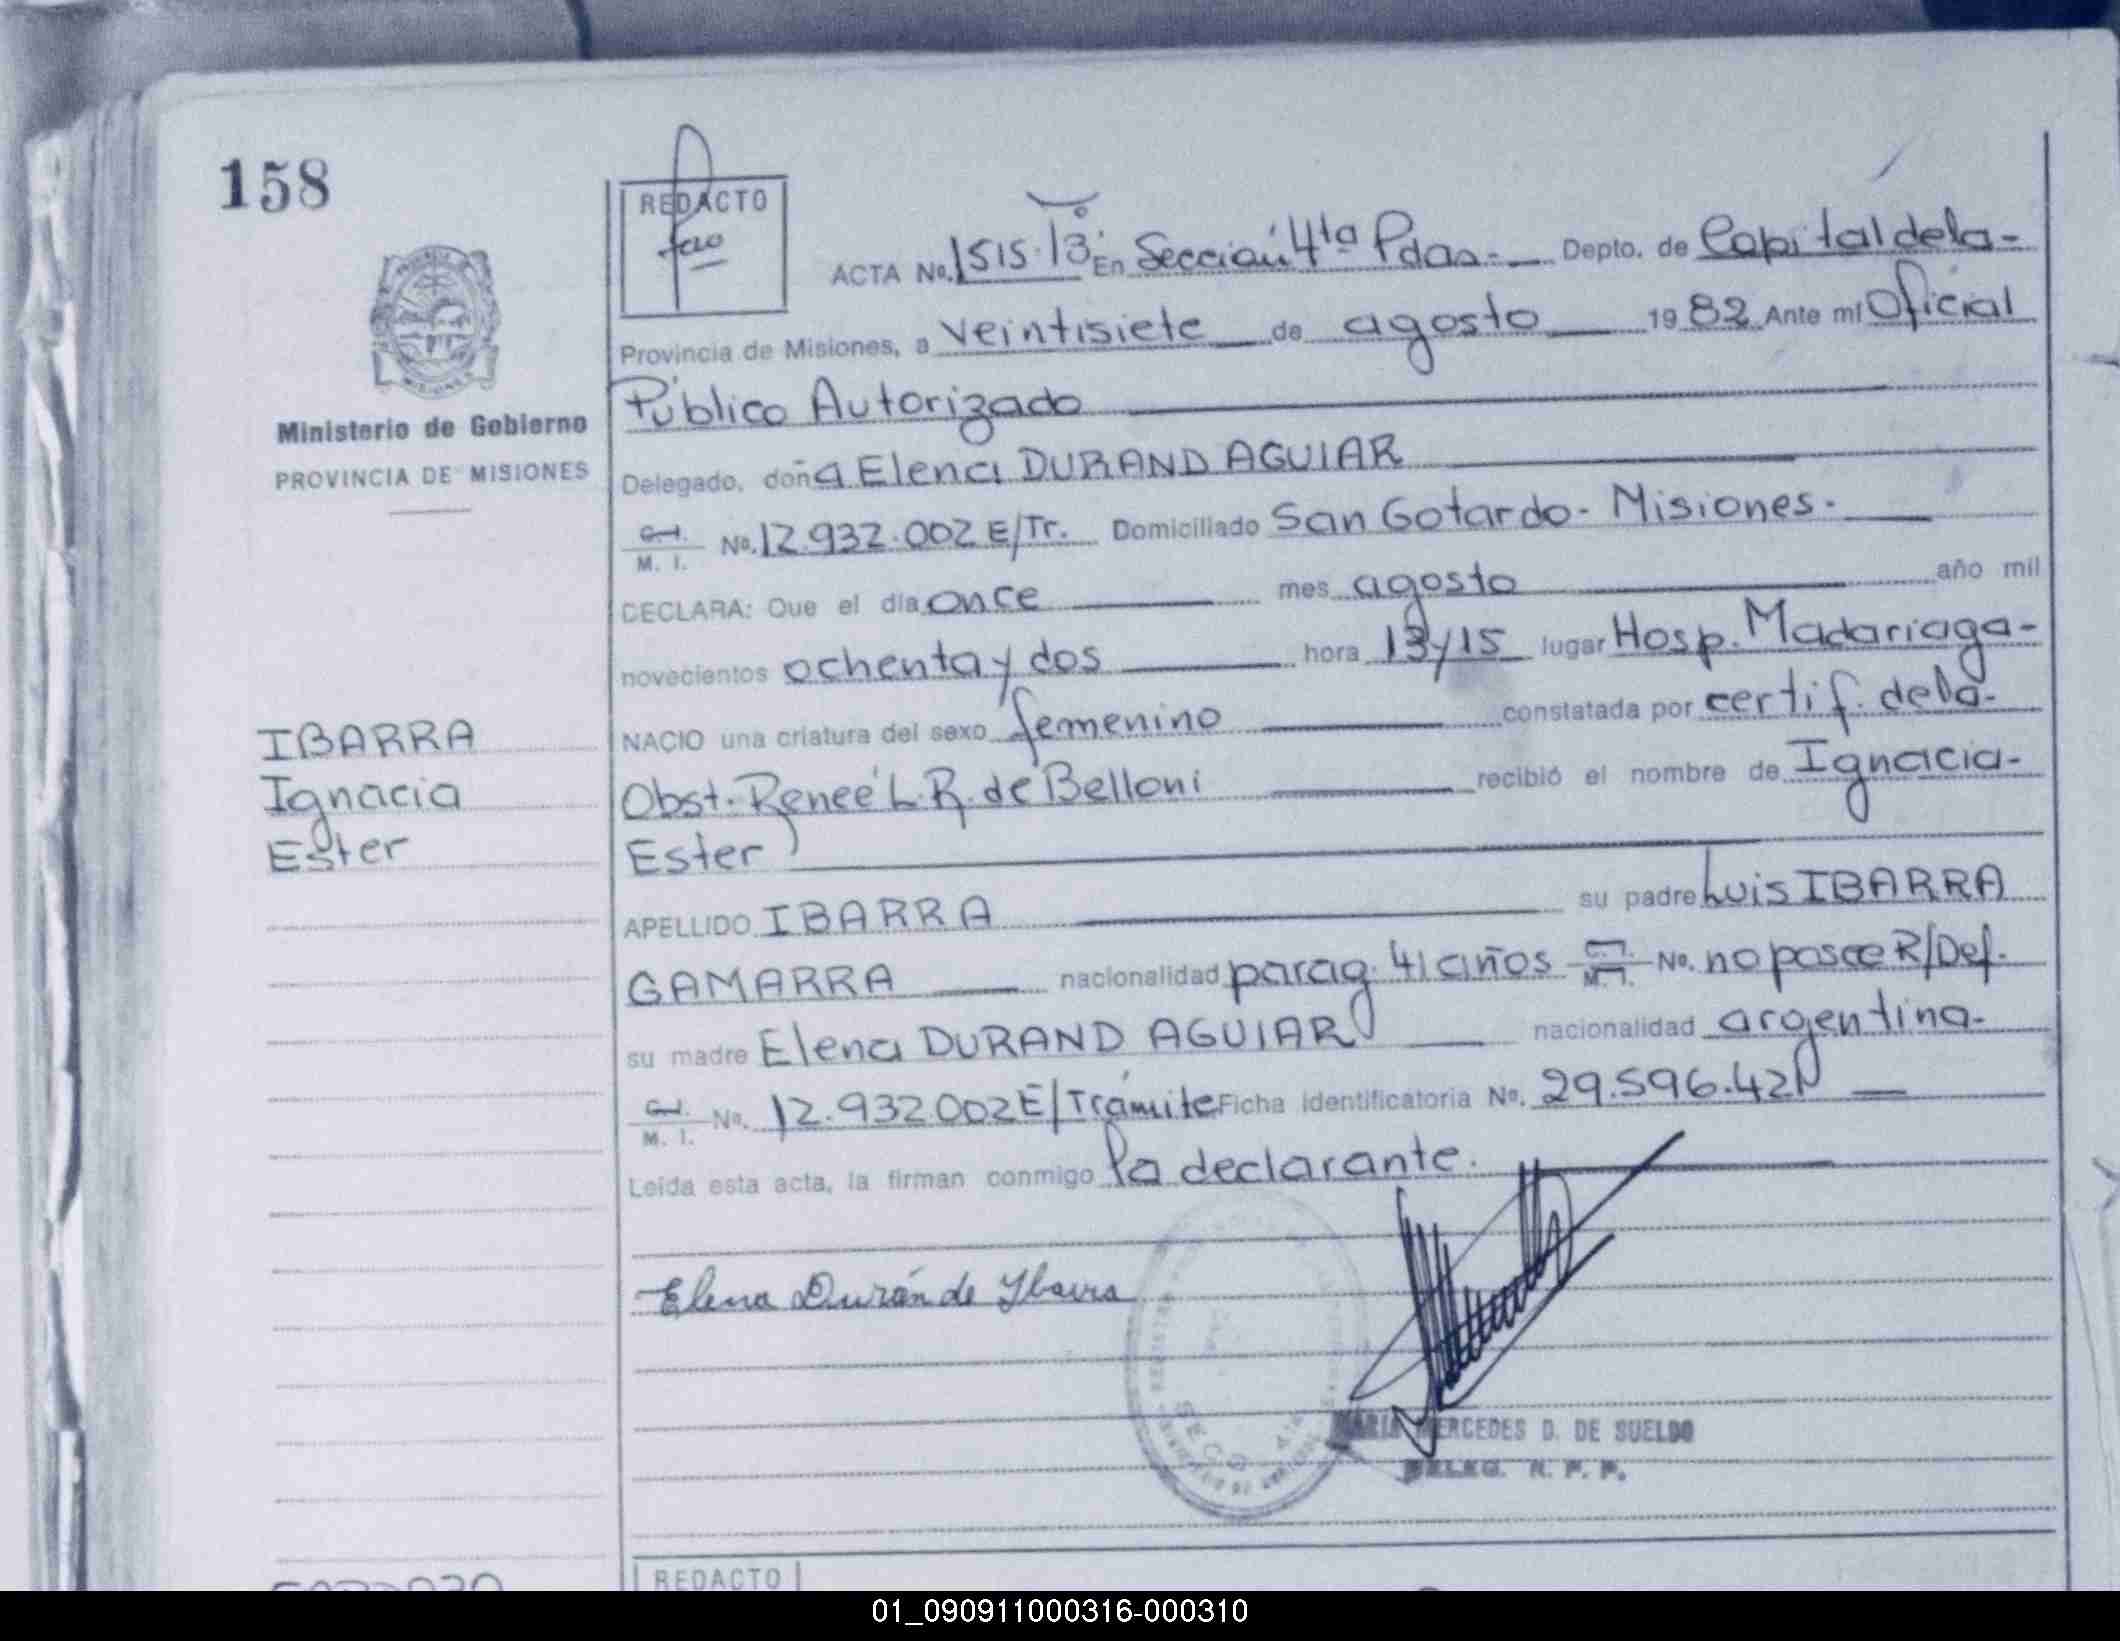 158
REDACTO
ACTA No. 1515.13 En Sección 4ta Pdas.- Depto. de Capital de la-
Provincia de Misiones, a veintisiete de agosto 1982 Ante mí Oficial
Público Autorizado
Delegado, doña Elena DURAND AGUIAR
C.I. M. I. No. 12.932.002 E/Tr. Domiciliado San Gotardo- Misiones.
DECLARA: Que el día once mes agosto año mil
novecientos ochenta y dos hora 13 y 15 lugar Hosp. Madariaga-
NACIO una criatura del sexo femenino constatada por certif. de la-
Obst. Reneé L. R. de Belloni recibió el nombre de Ignacia-
Ester
APELLIDO IBARRA su padre Luis IBARRA
GAMARRA nacionalidad parag. 41 años C.I. M.I. No. no posee R/Def.
su madre Elena DURAND AGUIAR nacionalidad argentina-
C.I. M. I. No. 12.932002 E/Trámite Ficha Identificatoria No. 29.596.421
Leída esta acta, la firman conmigo la declarante.
Elena Durán de Ybarra
MARIA MERCEDES D. DE SUELDO
DELEG. R. P. P.
Ministerio de Gobierno
PROVINCIA DE MISIONES
IBARRA
Ignacia
Ester
REDACTO
01_090911000316-000310